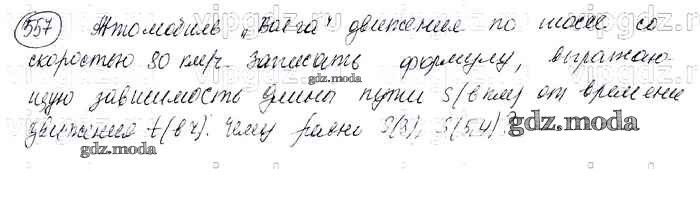 557 Автомобиль „Волга" движения по шоссе со
скоростью 80 км/ч. Записать формулу, выражаю-
щую зависимость длины пути S (в км) от времени
движения t (в ч). Чему равно S(3), S(5,4)?
gdz.moda
gdz.moda
gdz.moda
gdz.moda